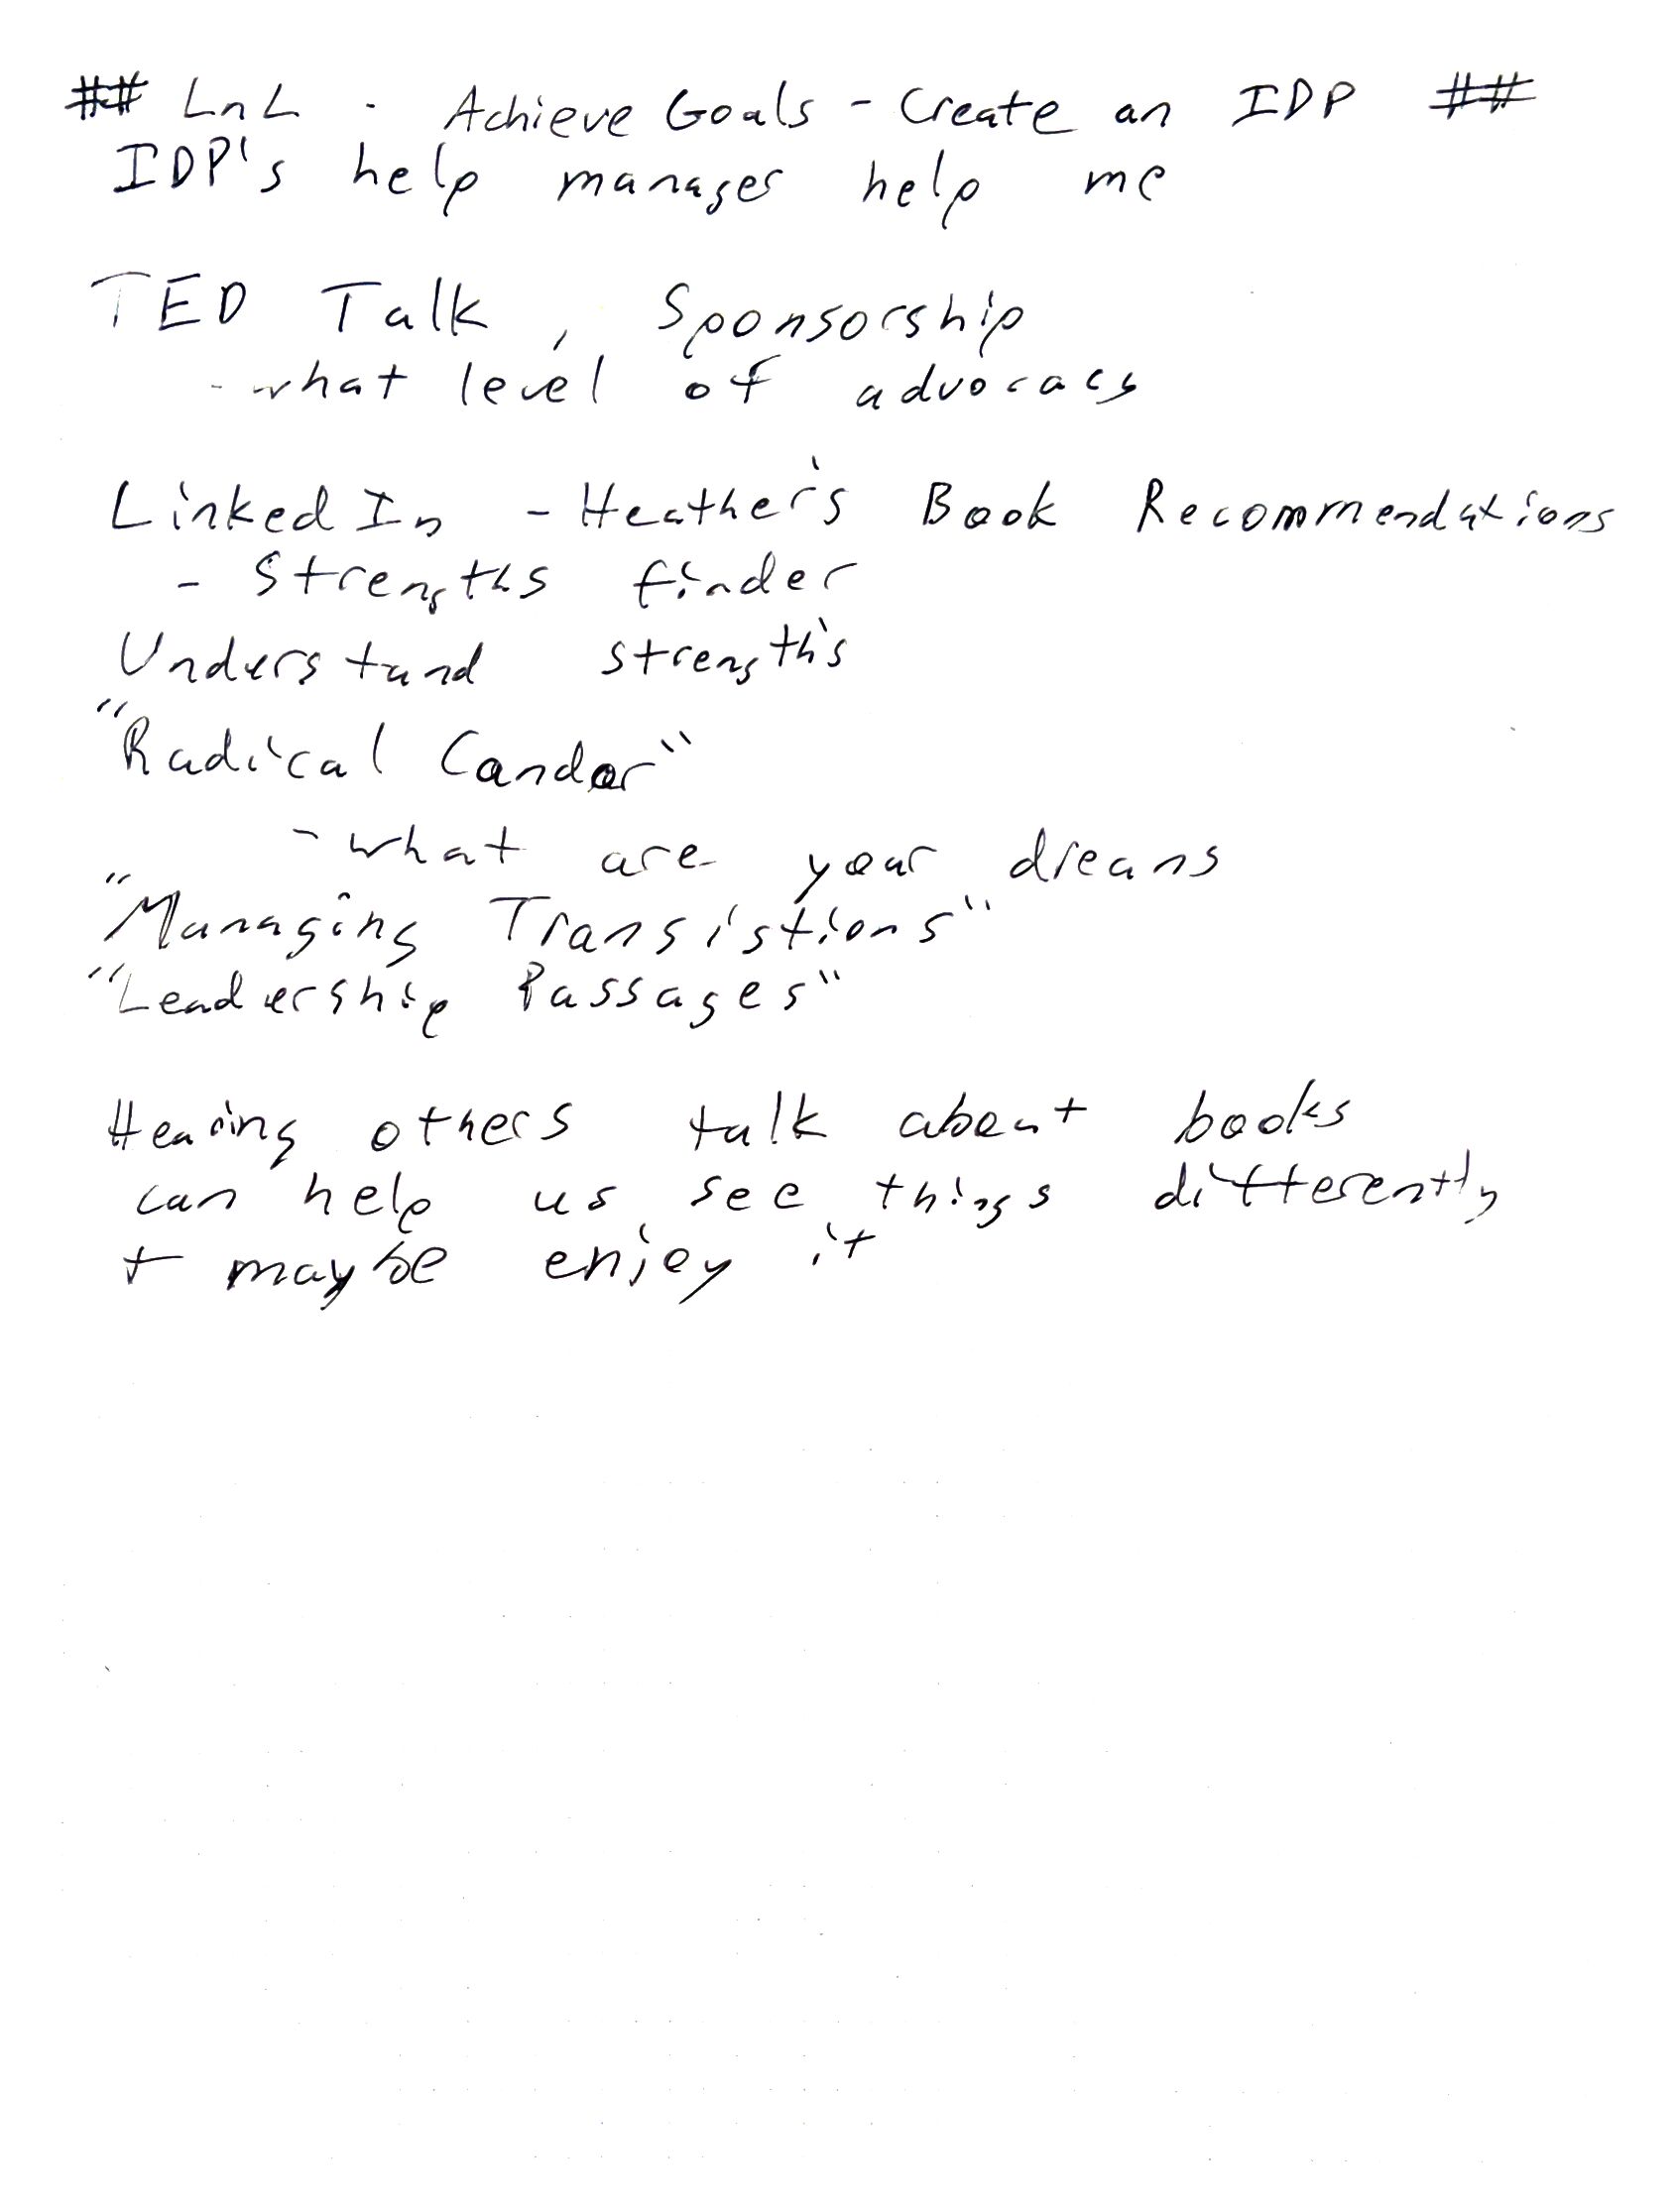 ## LnL - Achieve Goals - Create an IDP ##
IDP's help manager help me
TED Talk, Sponsorship
- what level of advocacy
LinkedIn - Heather's Book Recommendations
- Strengths finder
Understand strength's
"Radical Candor"
- what are your dreams
"Managing Transistions"
"Leadership Passages"
Hearing others talk about books
can help us see things differently
+ maybe enjoy it